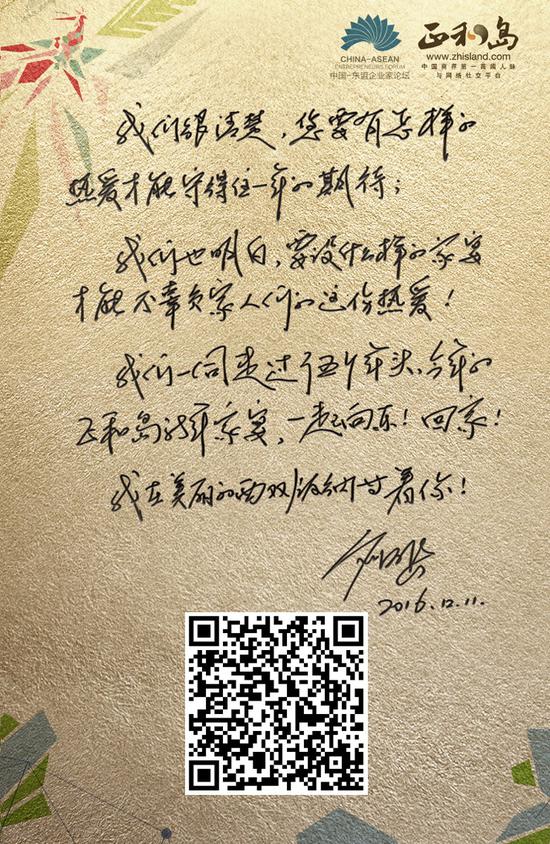 CHINA-ASEAN
ENTREPRENEURS FORUM
中国-东盟企业家论坛
正和岛
www.zhisland.com
中国商界第一高端人脉
与网络社交平台
我们很清楚，您要有怎样的
热爱才能守得住一年的期待；
我们也明白，要设什么样的家宴
才能不辜负家人们的这份热爱！
我们一同走过了五个年头，今年的
正和岛新年家宴，一起向东！回家！
我在美丽的西双版纳等着你！
2016.12.11.